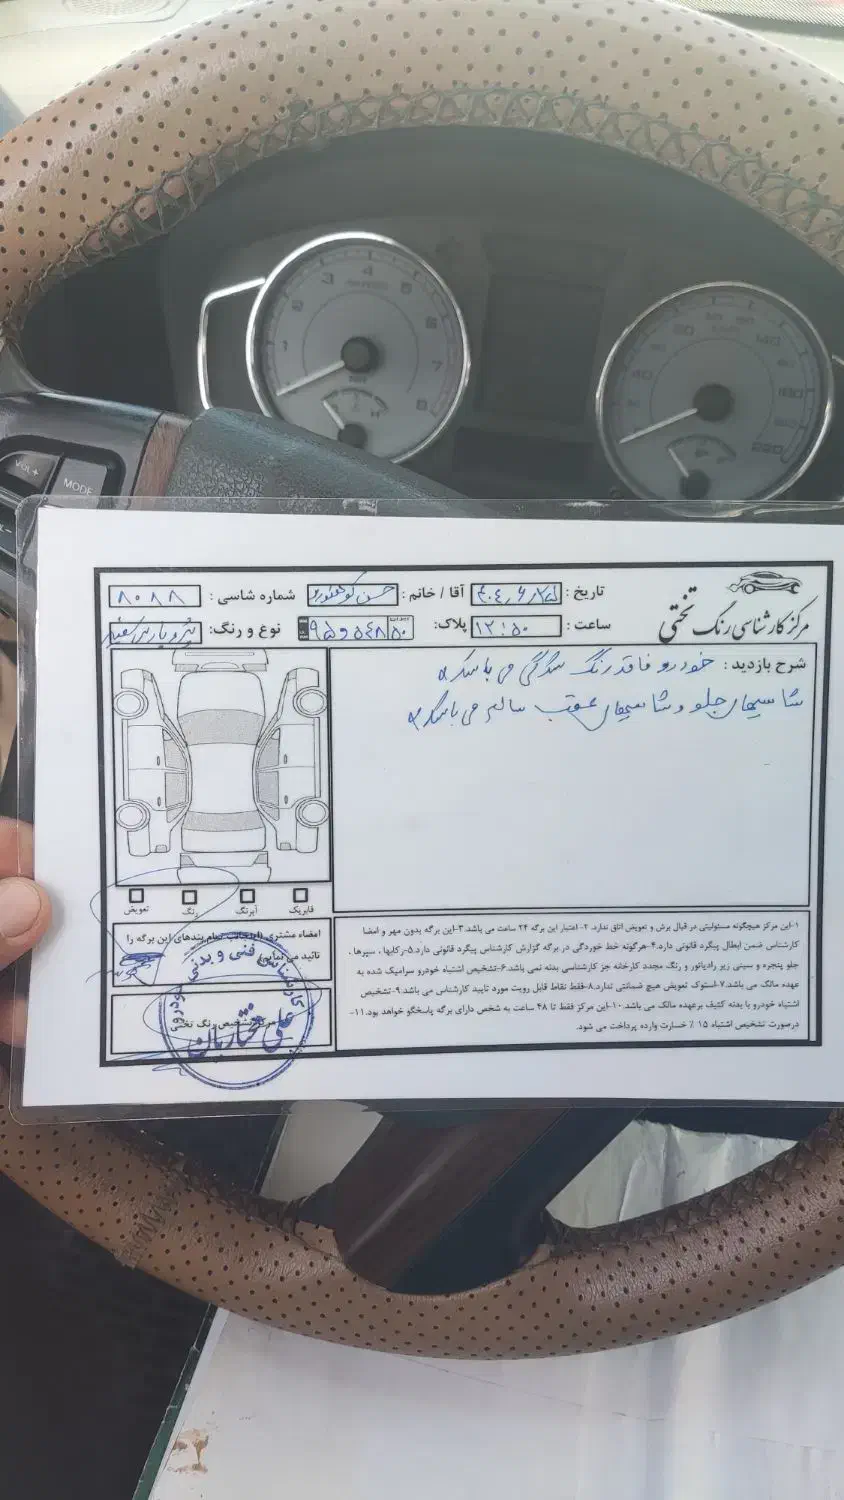 VOL+
MODE
1
2
3
4
5
6
7
8
40
80
140
180
220
مرکز کارشناسی رنگ تختی
تاریخ : ۴۰۴٫۶٫۲۵
آقا / خانم : حسن
شماره شاسی : ۸۰۸۸
ساعت : ۱۲:۵۰
پلاک:
نوع و رنگ: پژو پارس سفید
شرح بازدید : خودرو فاقد رنگ شدگی می باشد
شاسیهای جلو و شاسیهای عقب سالم می باشد
فابریک
آبرنگ
رنگ
تعویض
امضاء مشتری (اینجانب تمام بندهای این برگه را
تائید می نمایم)
مرکز تشخیص رنگ تختی
کارشناس فنی و بدنه خودرو
علی مختاریان
۱-این مرکز هیچگونه مسئولیتی در قبال برش و تعویض اتاق ندارد. ۲- اعتبار این برگه ۲۴ ساعت می باشد.۳-این برگه بدون مهر و امضا
کارشناس ضمن ابطال پیگرد قانونی دارد.۴-هرگونه خط خوردگی در برگه گزارش کارشناس پیگرد قانونی دارد.۵-رکابها ، سپرها ،
جلو پنجره و سینی زیر رادیاتور و رنگ مجدد کارخانه جز کارشناسی بدنه نمی باشد.۶-تشخیص اشتباه خودرو سرامیک شده به
عهده مالک می باشد.۷-استوک تعویض هیچ ضمانتی ندارد.۸-فقط نقاط قابل رویت مورد تایید کارشناس می باشد.۹-تشخیص
اشتباه خودرو با بدنه کثیف برعهده مالک می باشد.۱۰-این مرکز فقط تا ۴۸ ساعت به شخص دارای برگه پاسخگو خواهد بود.۱۱-
درصورت تشخیص اشتباه ۱۵ ٪ خسارت وارده پرداخت می شود.